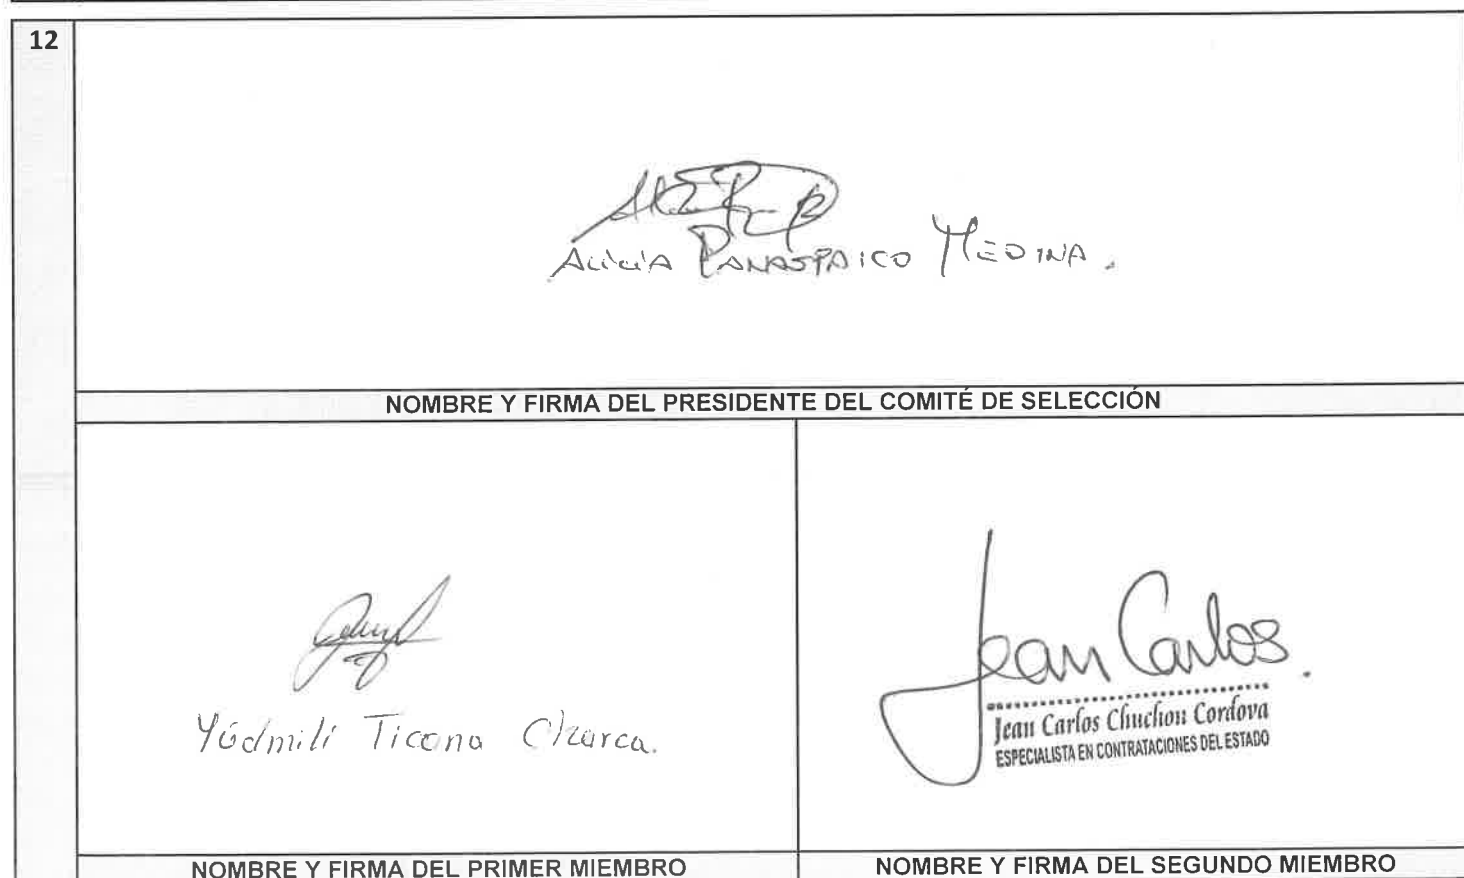 12
ALICIA PANASPAICO MEDINA.
NOMBRE Y FIRMA DEL PRESIDENTE DEL COMITÉ DE SELECCIÓN
Yúdmili Ticona Charca.
Jean Carlos.
Jean Carlos Chuchon Cordova
ESPECIALISTA EN CONTRATACIONES DEL ESTADO
NOMBRE Y FIRMA DEL PRIMER MIEMBRO
NOMBRE Y FIRMA DEL SEGUNDO MIEMBRO